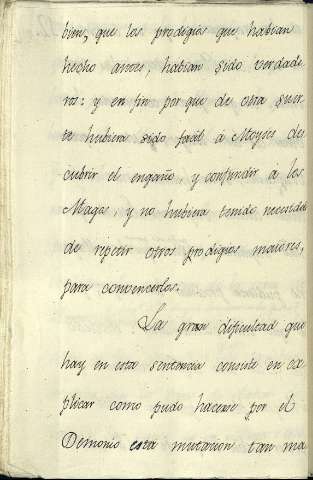 bien, que los prodigios que habian
hecho antes, habian sido verdade
ros: y en fin por que de otra suer
te hubiera sido facil à Moyses des
cubrir el engaño, y confundir a los
Magos, y no hubiera tenido necesidad
de repetir otros prodigios maiores,
para convencerlos.
La gran dificultad que
hay en esta sentencia consiste en ex
plicar como pudo hacerse por el
Demonio esta mutacion tan ma